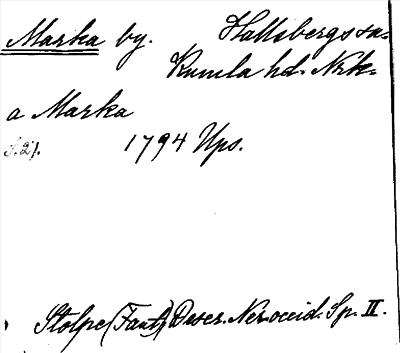 Marka by. Hallsbergs sn.
Kumla hd. Nrk.
a Marka
s. 27. 1794 Ups.
Stolpe (Fant) Descr. Ner. occid. Sp. II.